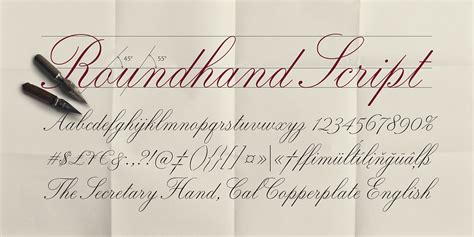 Roundhand Script
45° 55°
Aabcdefghijklmnopqrstuvwxyz 1234567890%
The Secretary Hand, Cal Copperplate English